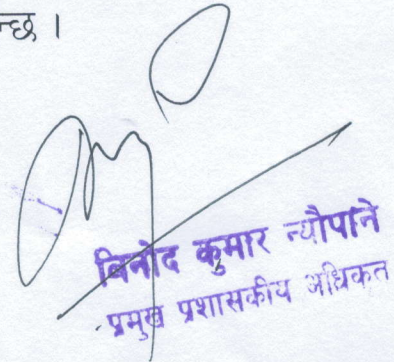 न्छ ।
विनोद कुमार न्यौपाने
प्रमुख प्रशासकीय अधिकृत